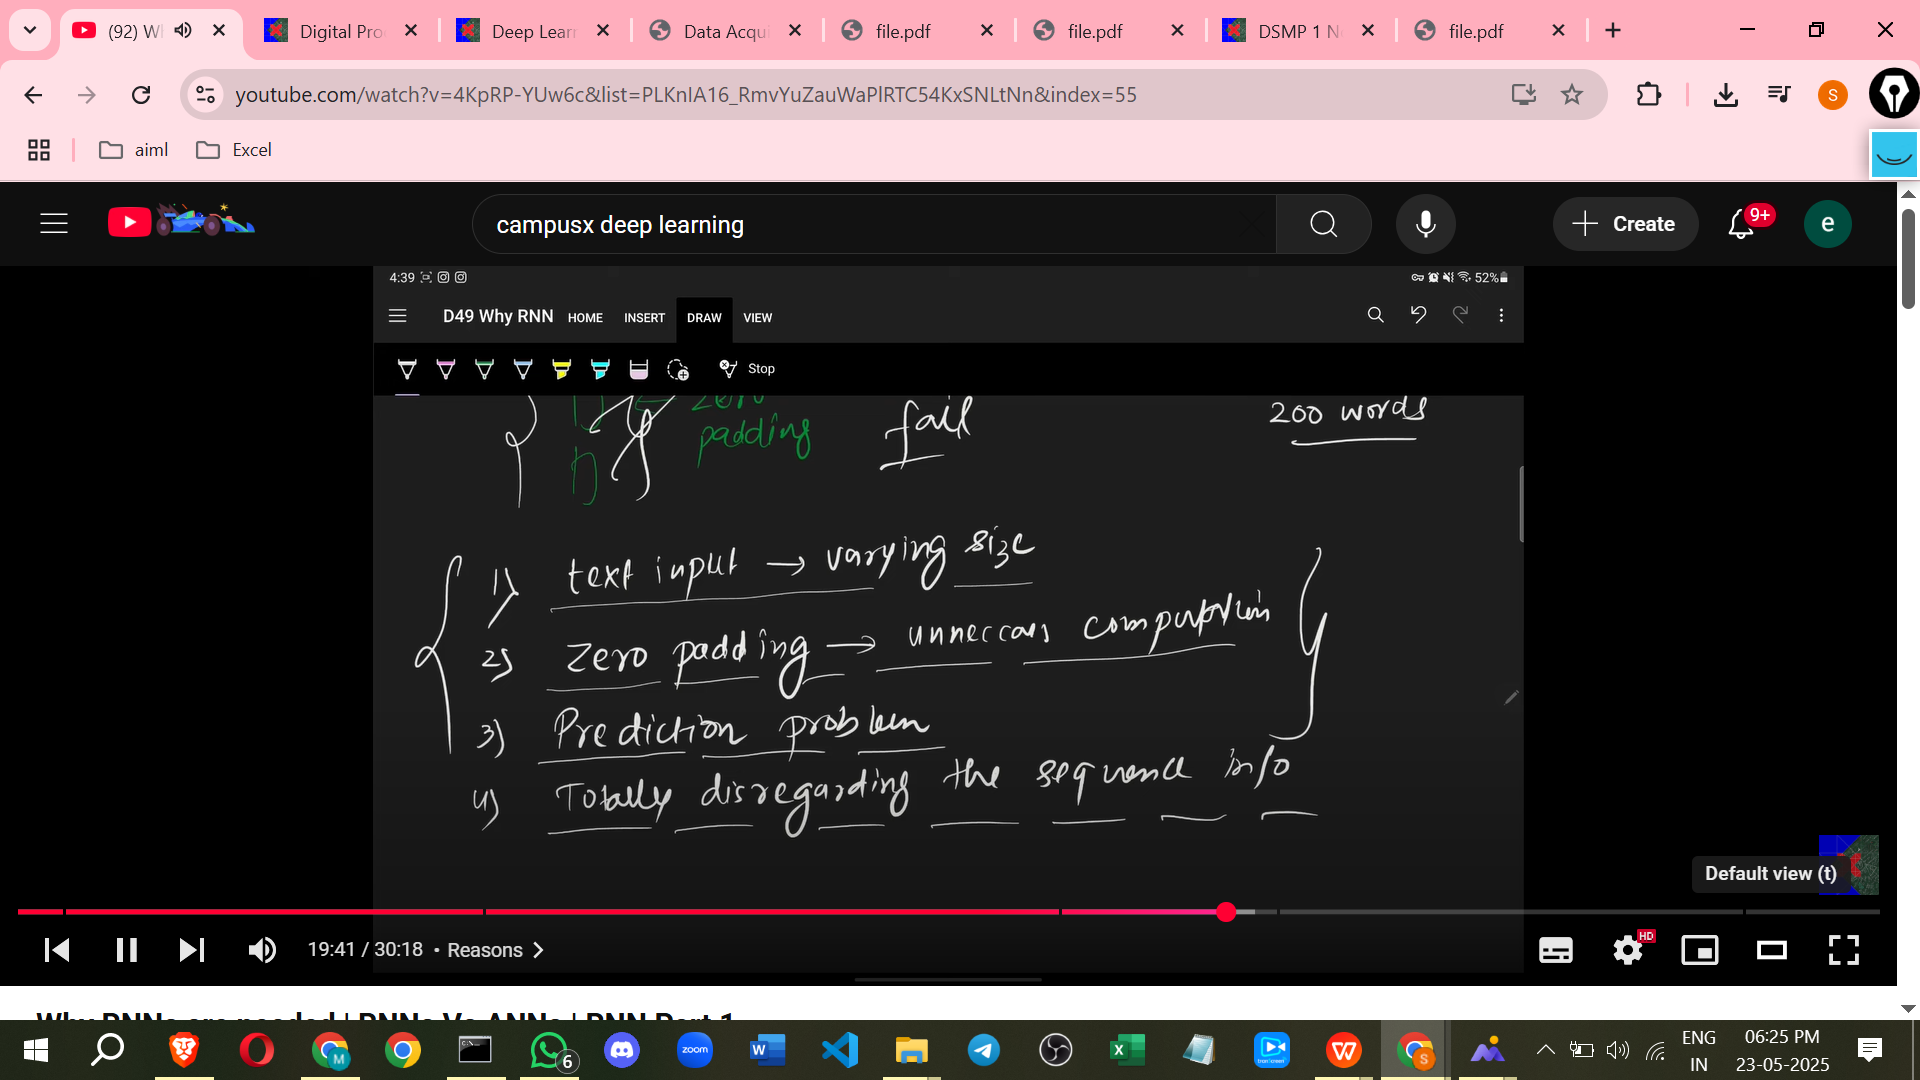 (92) W
Digital Pro
Deep Learn
Data Acqui
file.pdf
file.pdf
DSMP 1 N
file.pdf
youtube.com/watch?v=4KpRP-YUw6c&list=PLKnIA16_RmvYuZauWaPlRTC54KxSNLtNn&index=55
S
aiml
Excel
campusx deep learning
Create
9+
e
4:39
52%
D49 Why RNN
HOME
INSERT
DRAW
VIEW
Stop
zero
padding
fail
200 words
1) text input → varying size
2) Zero padding → unneccars computation
3) Prediction problem
4) Totally disregarding the sequence info
Default view (t)
19:41 / 30:18 • Reasons
HD
Why RNNs are needed | RNNs Vs ANNs | RNN Part 1
M
6
zoom
S
ENG
IN
06:25 PM
23-05-2025